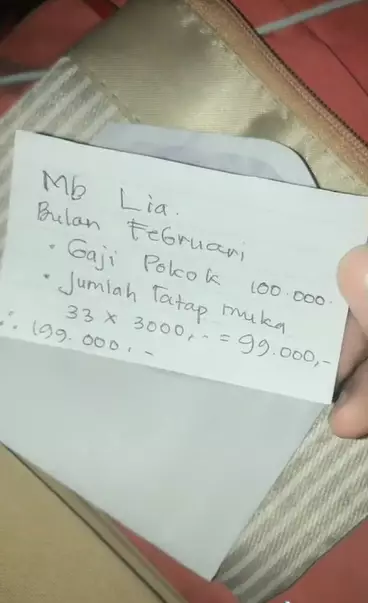 Mb Lia.
Bulan Februari
• Gaji Pokok 100.000.
• Jumlah Tatap muka
33 x 3000,- = 99.000,-
∴ 199.000,-